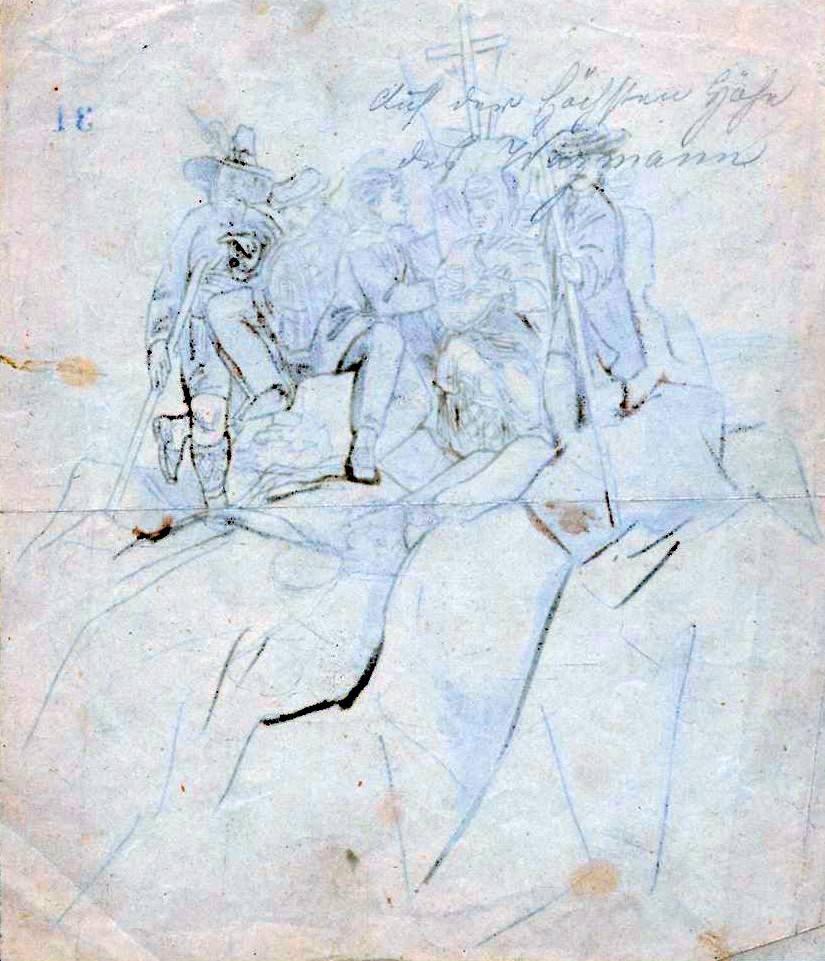 Auf der höchsten Höhe
des Watzmann
31